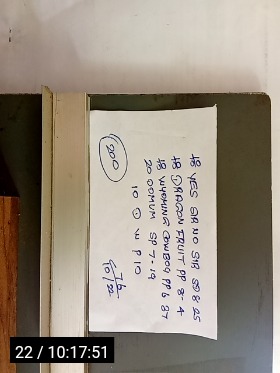 48 YES SIR NO SIR SD 8 25
48 DRAGON FRUIT PP 8-4
48 WYOMING COWBOY PP 6 87
20 DOMUM SP 7-19
10 ① W P 10
200
22 / 10:17:51